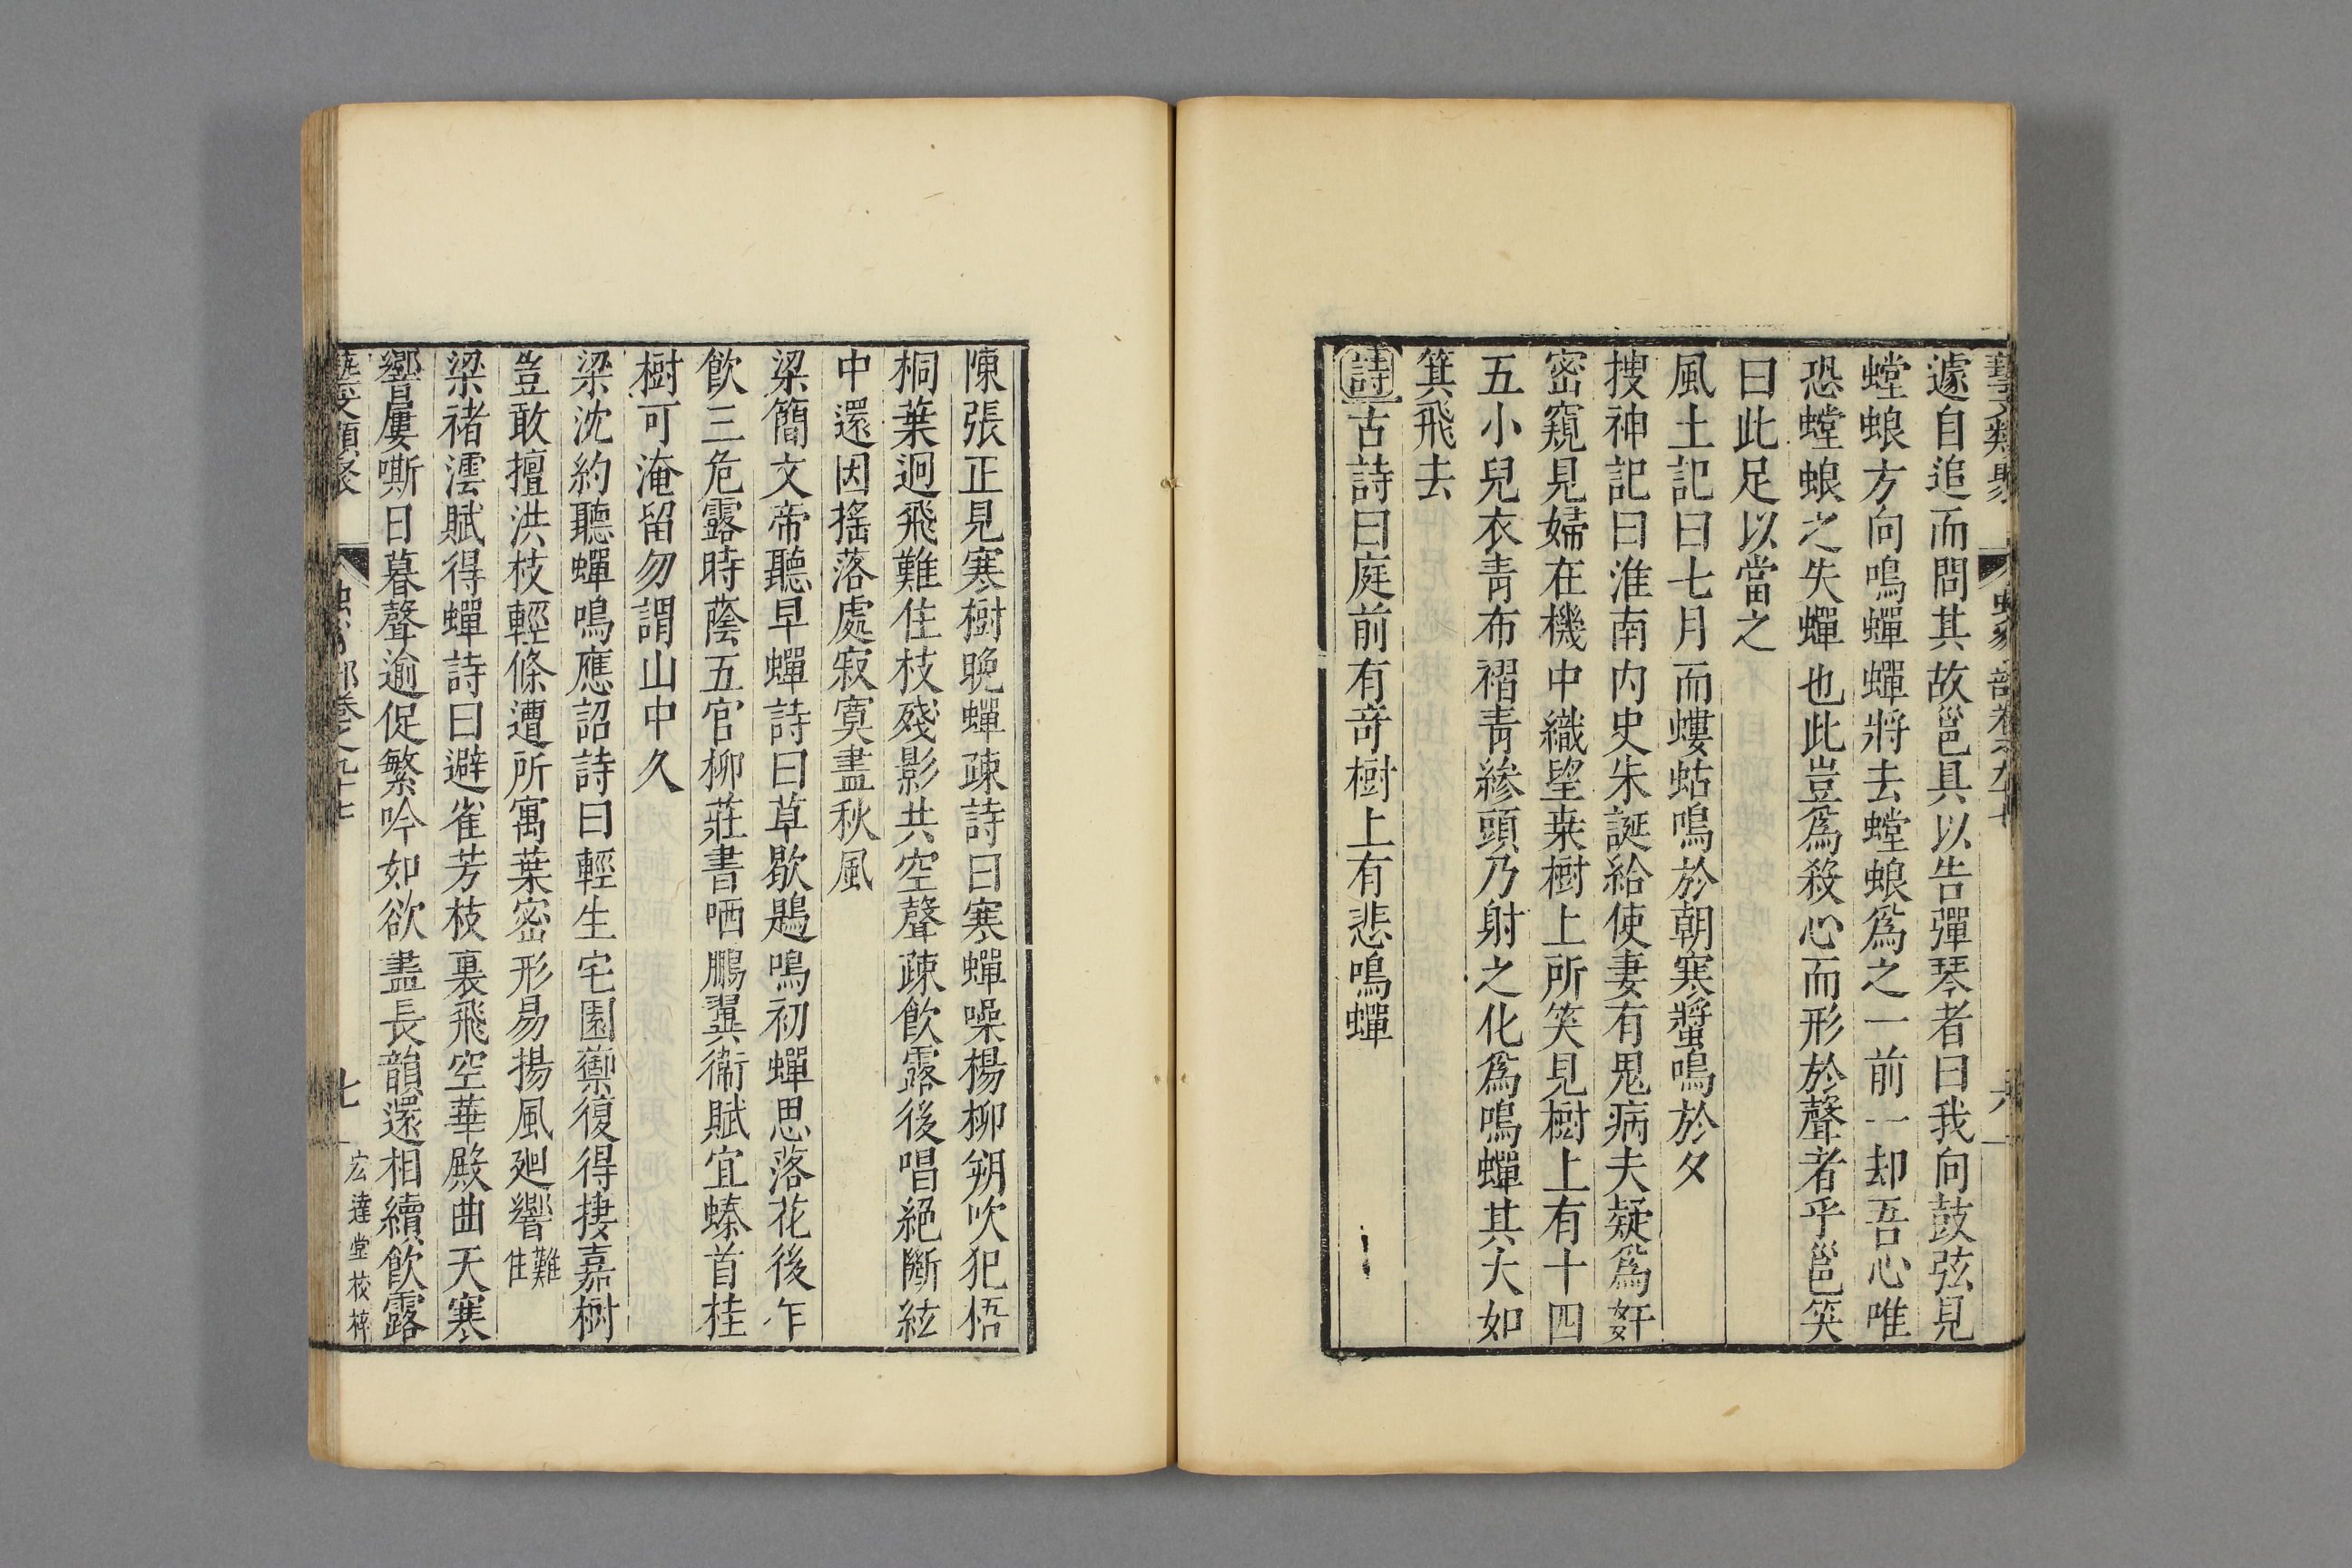 遽自追而問其故邕具以告彈琴者曰我向鼓弦見
螳蜋方向鳴蟬蟬將去螳蜋爲之一前一却吾心唯
恐螳蜋之失蟬也此豈爲殺心而形於聲者乎邕笑
曰此足以當之
風土記曰七月而螻蛄鳴於朝寒螿鳴於夕
搜神記曰淮南内史朱誕給使妻有鬼病夫疑爲奸
密窺見婦在機中織望桒樹上所笑見樹上有十四
五小兒衣青布褶青幓頭乃射之化爲鳴蟬其大如
箕飛去
詩古詩曰庭前有奇樹上有悲鳴蟬
陳張正見寒樹晚蟬疎詩曰寒蟬噪楊柳朔吹犯梧
桐葉迥飛難住枝殘影共空聲疎飲露後唱絕斷絃
中還因搖落處寂寞盡秋風
梁簡文帝聽早蟬詩曰草歇鶗鳴初蟬思落花後乍
飲三危露時蔭五官柳莊書哂鵬翼衞賦宜螓首桂
樹可淹留勿謂山中久
梁沈約聽蟬鳴應詔詩曰輕生宅園籞復得捿嘉樹
豈敢擅洪枝輕條遭所寓葉密形易揚風廻響難住
梁褚澐賦得蟬詩曰避雀芳枝裏飛空華殿曲天寒
響屢嘶日暮聲逾促繁吟如欲盡長韻還相續飲露
七 宏達堂校梓